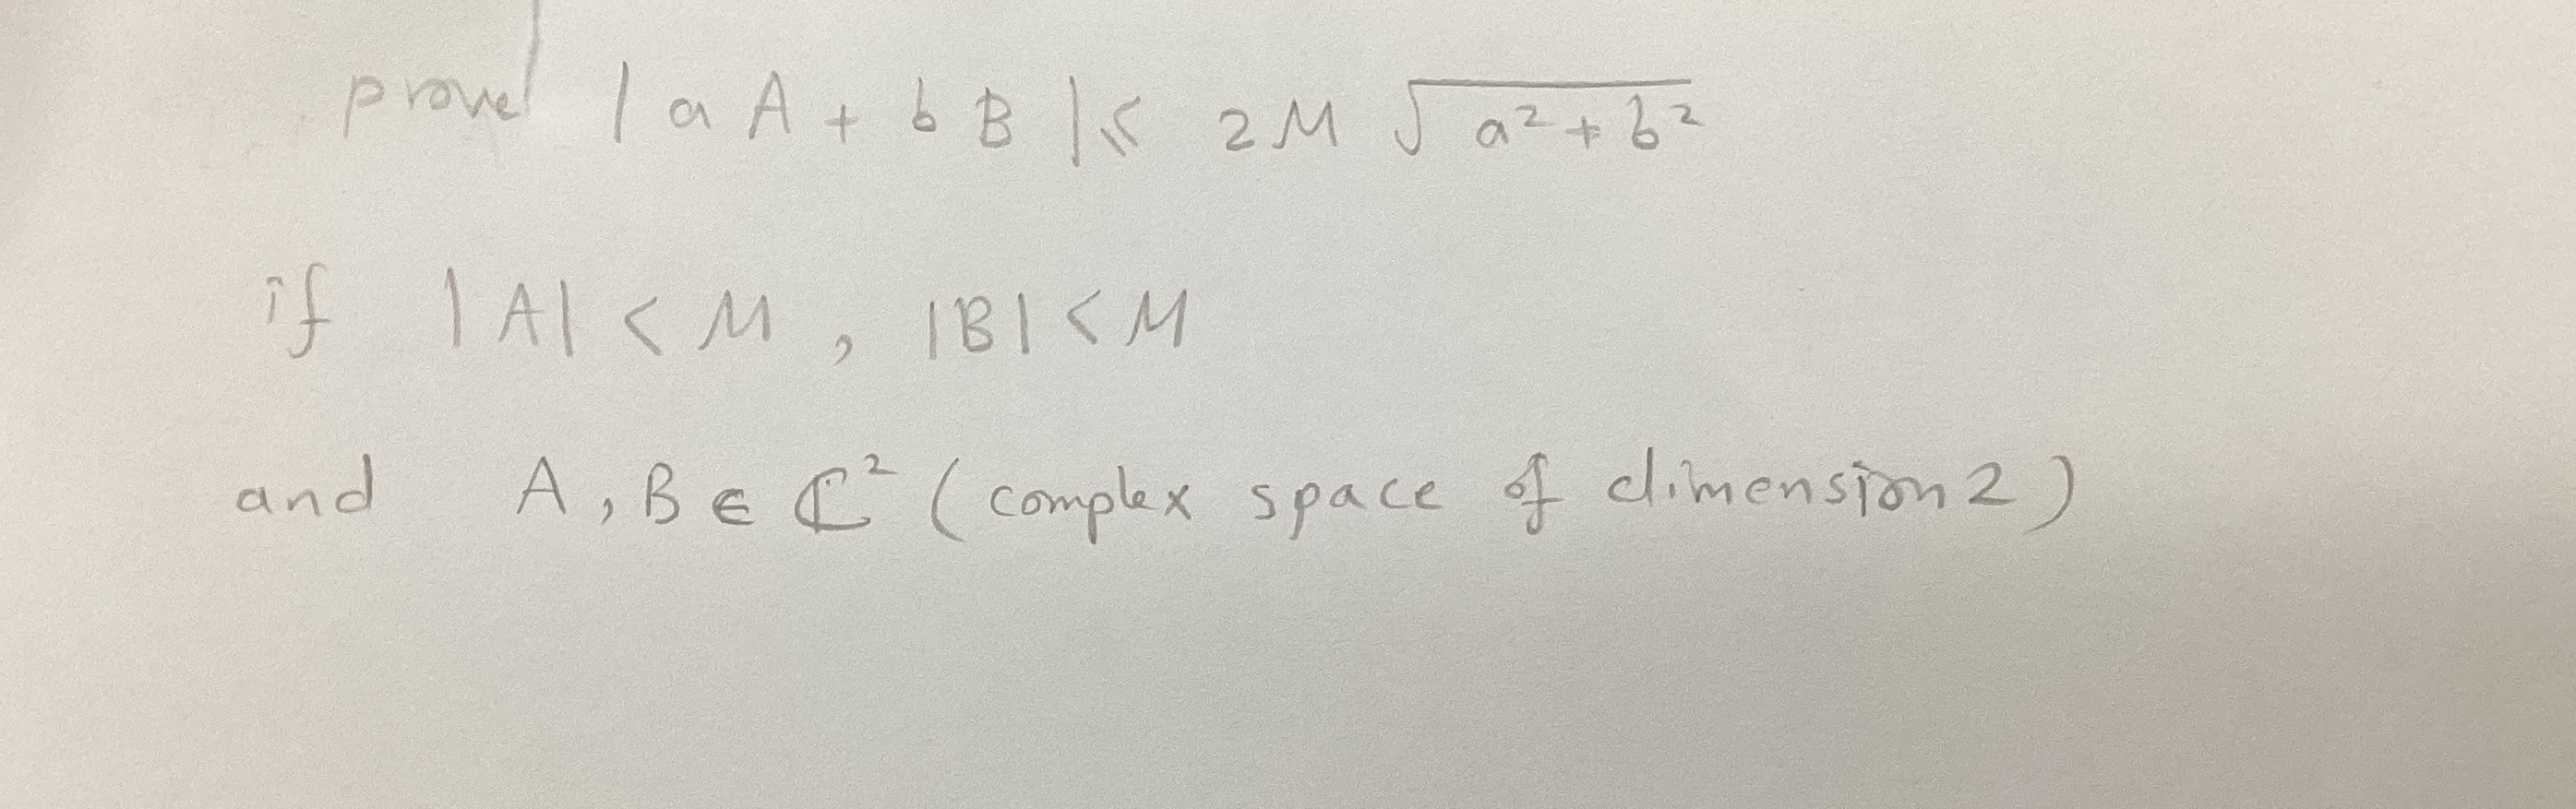 prove |aA + bB| ≤ 2M √(a² + b²)
if |A| < M, |B| < M
and A, B ∈ ℂ² (complex space of dimension 2)